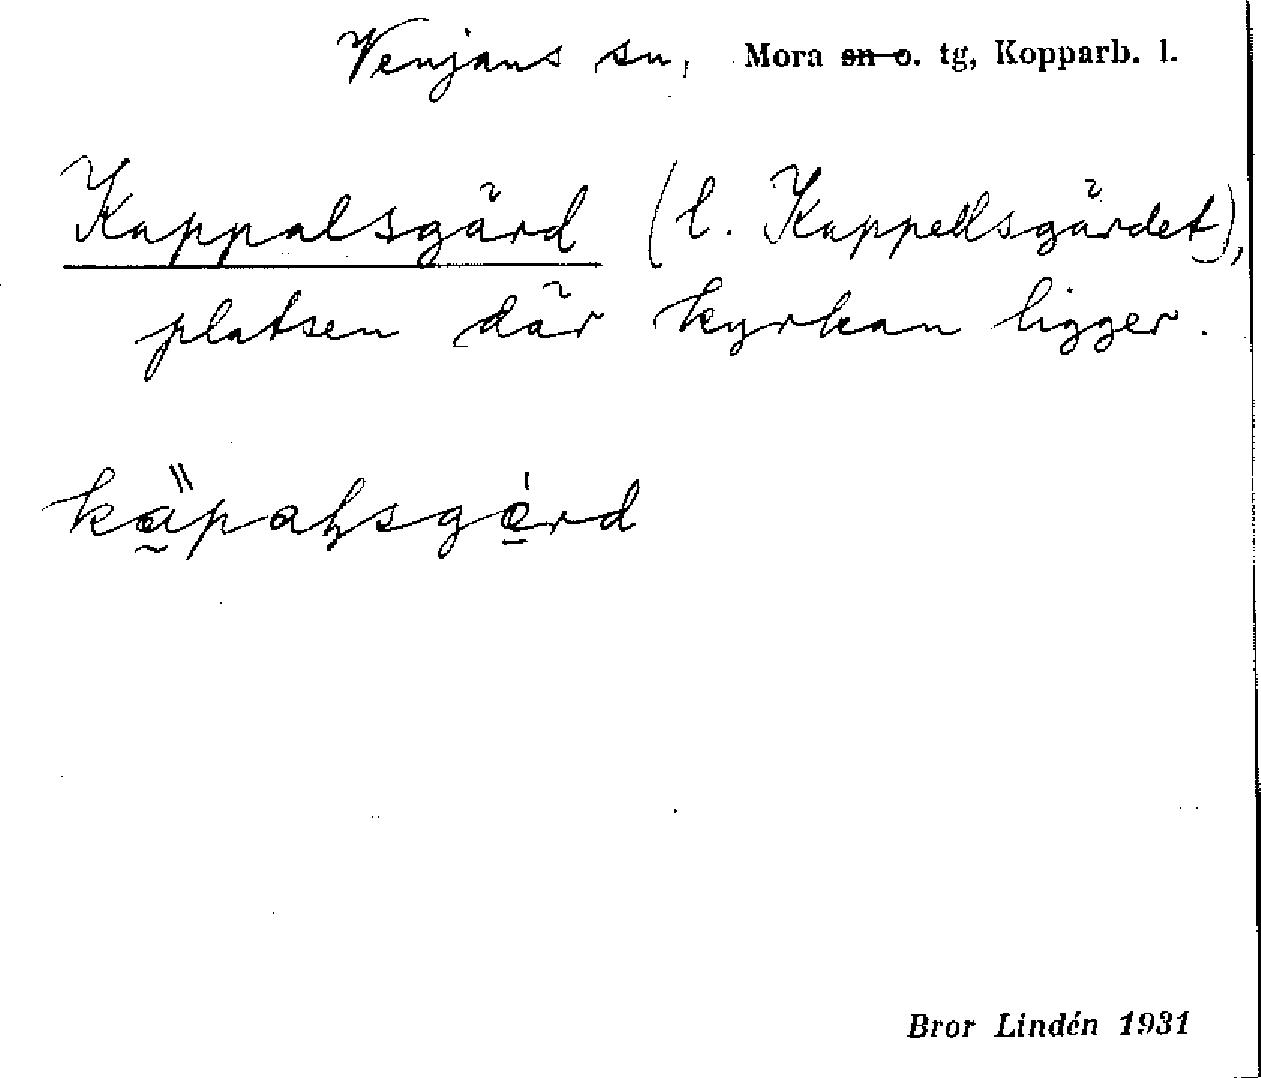 Venjans sn, Mora sn o. tg, Kopparb. l.
Kappalsgärd (l. Kappellsgärdet),
platsen där kyrkan ligger.
Bror Lindén 1931